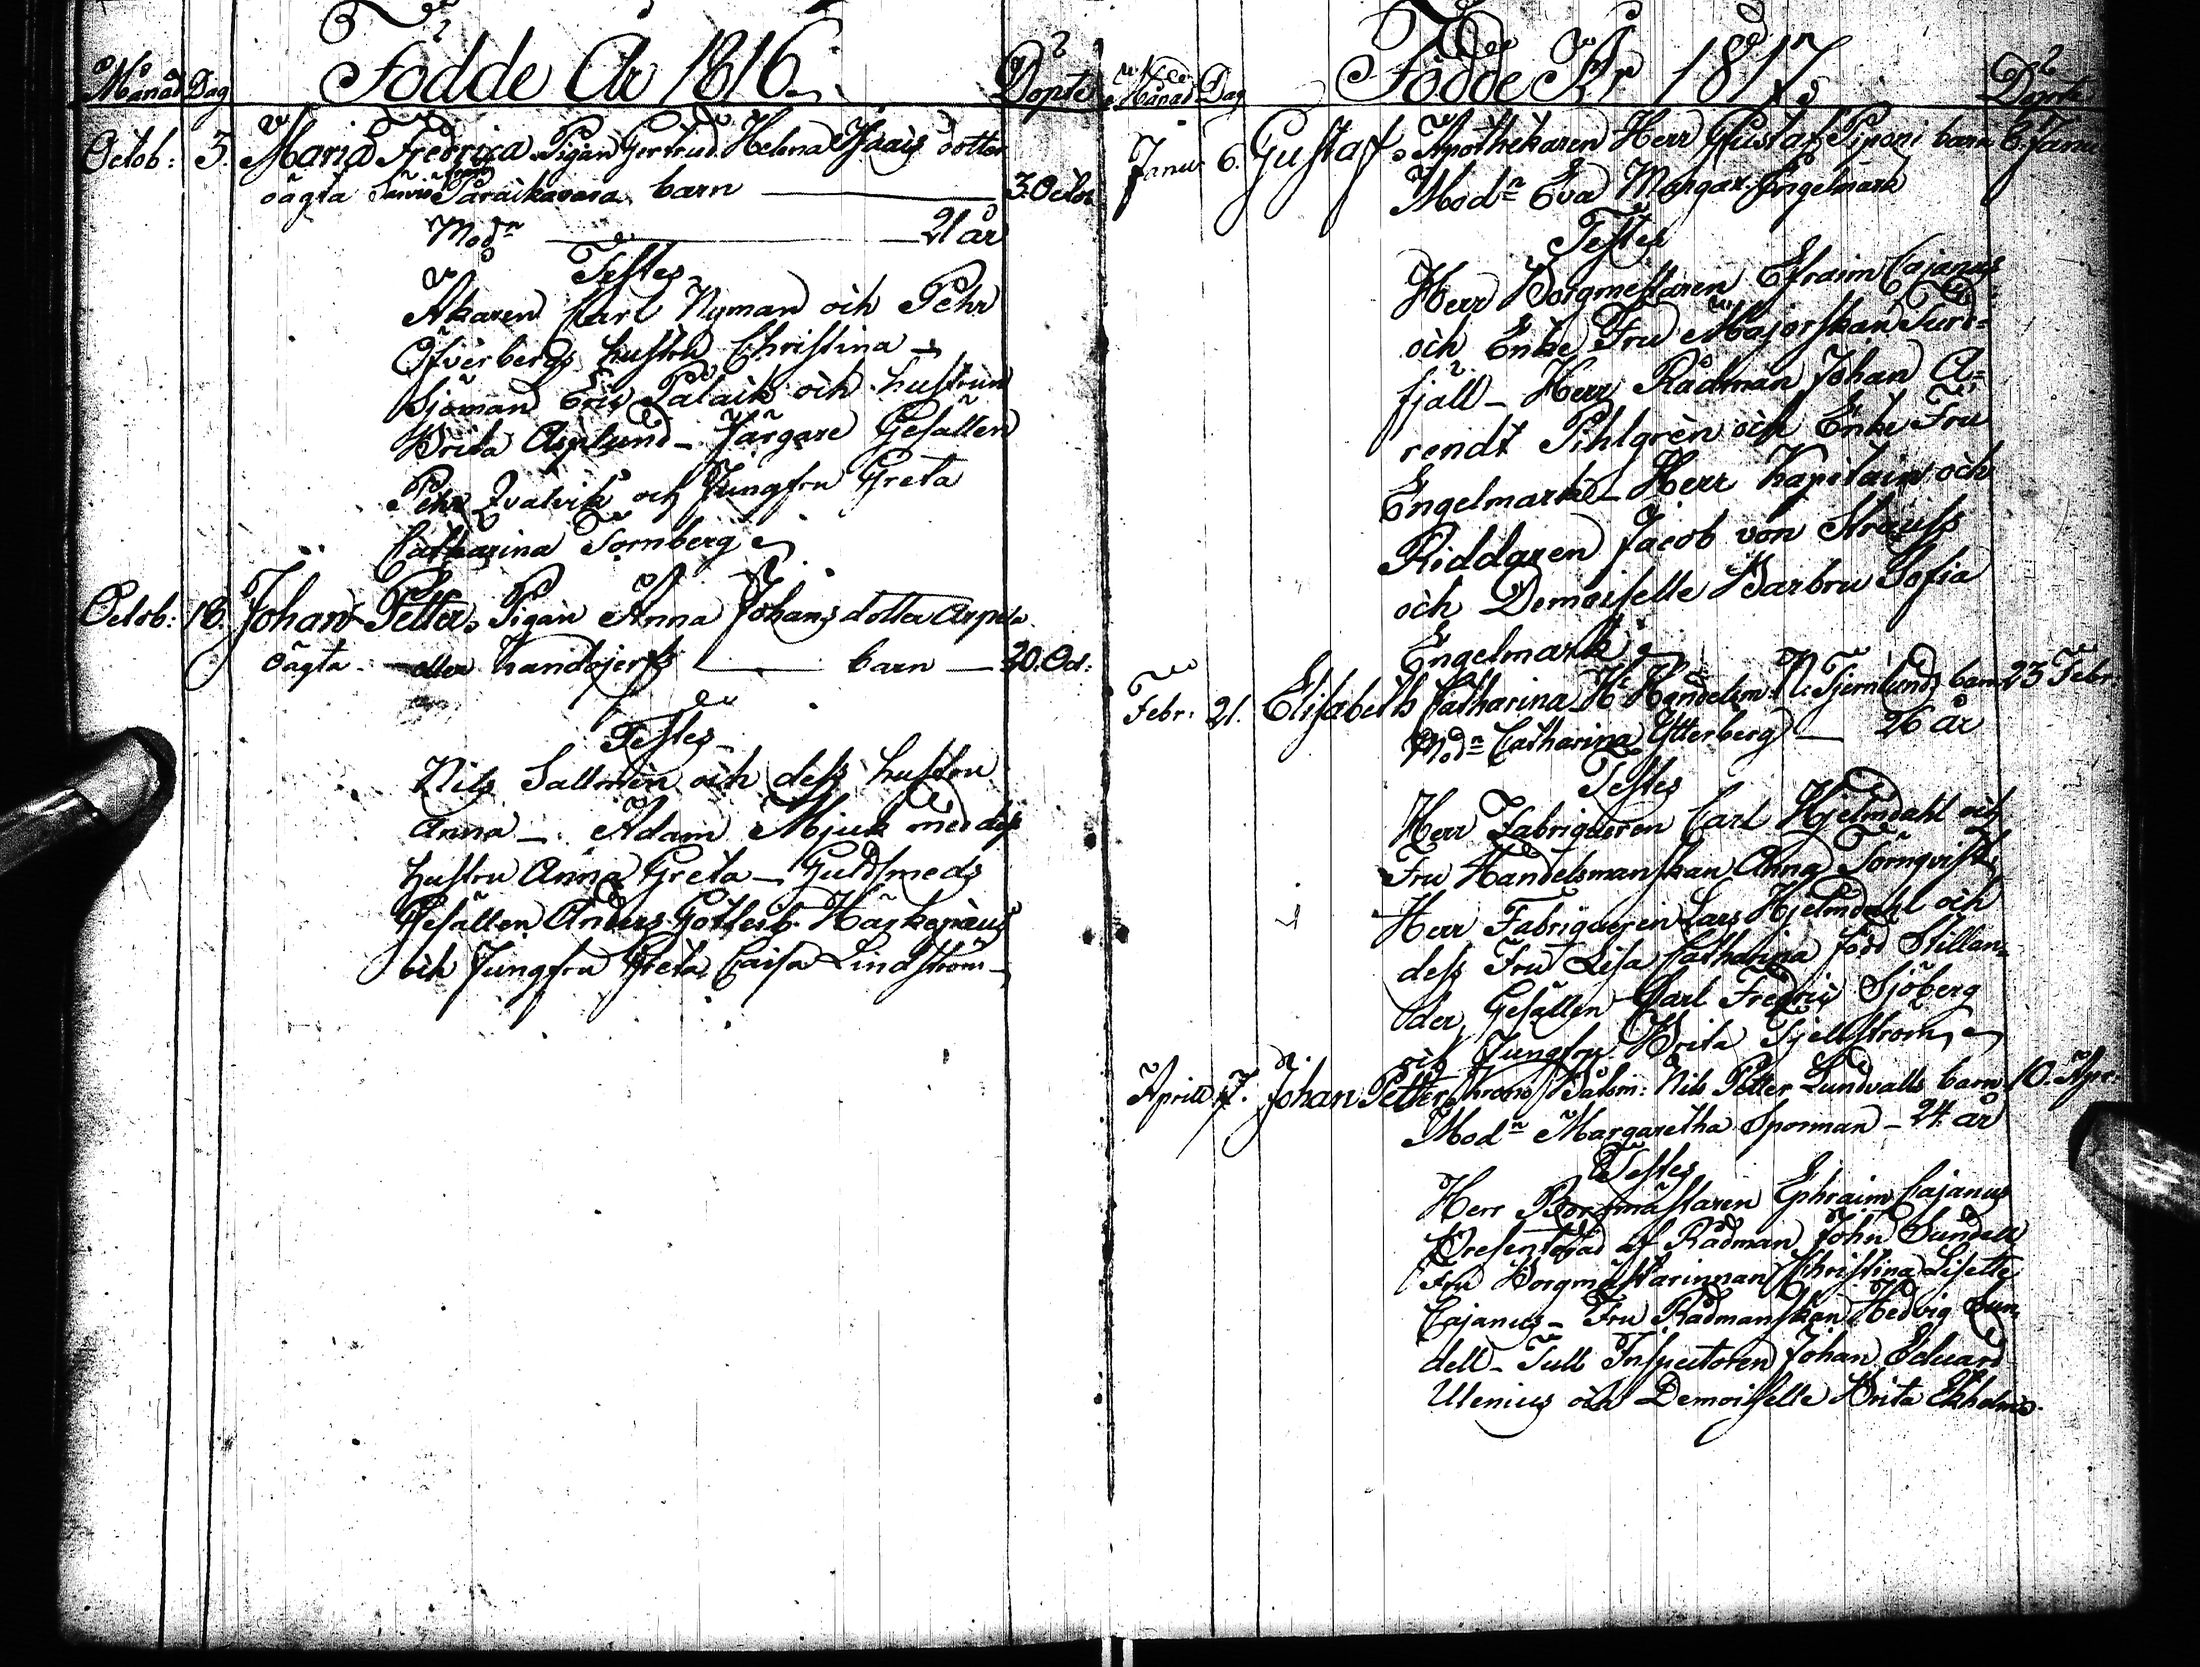 Födde År 1816.
Månad Dag Döpte
Octob: 3. Maria Fredrica Pigan Gertrud Helena Isaacs dotter
oägta barn 3. Octob
Modn 21 år
Testes
Åkaren Carl Nyman och Pehr
Öfverbergs hustru Christina
Sjöman Eric Palaik och hustrun
Brita Asplund - Färgare Gesällen
Pehr Qvalvik och Jungfru Greta
Catharina Tornberg
Octob: 18. Johan Petter. Pigan Anna Johans dotter
oägta eller barn 20. Oct:
Testes
Nils Sallmén och dess hustru
Anna - Adam Mjuk med dess
hustru Anna Greta - Guldsmeds
Gesällen Anders Gottlieb
och Jungfru Greta Caisa Lindström
Födde År 1817
Månad Dag Döpte
Janu 6. Gustaf. Apothekaren Herr Gustaf Piponi barn 6. Janu
Modn Eva Margar. Engelmark
Testes
Herr Borgmestaren Efraim Cajanus
och Enke Fru Majorskan Turd=
fjäll - Herr Rådman Johan A=
rendt Pihlgrén och Enke Fru
Engelmark - Herr Kapitain och
Riddaren Jacob von Strauss
och Demoiselle Barbru Sofia
Engelmark
Febr. 21. Elisabeth Catharina Hr Handelsm. N. Tjernlunds barn 23 Febr.
Modn Catharina Ytterberg 26 år
Testes
Herr Fabriqueren Carl Hjelmdahl och
Fru Handelsmanskan Anna Törnqvist
Herr Fabriqueren Lars Hjelmdahl och
dess Fru Lisa Catharina född Stillan=
der, Gesällen Carl Fredric Sjöberg
och Jungfru Brita Fjellström
Aprill 7. Johan Petter Krono Båtsm: Nils Petter Lundvalls barn 10. Apr:
Modn Margaretha Sporman - 24. år
Testes
Herr Borgmästaren Ephraim Cajanus
af Rådman John Sundell
Fru Borgmästarinnan Christina Lisette
Cajanus - Fru Rådmanskan Hedvig Sun
dell - Tull Inspectoren Johan Eduard
Ulenius och Demoiselle Brita Ekholm.